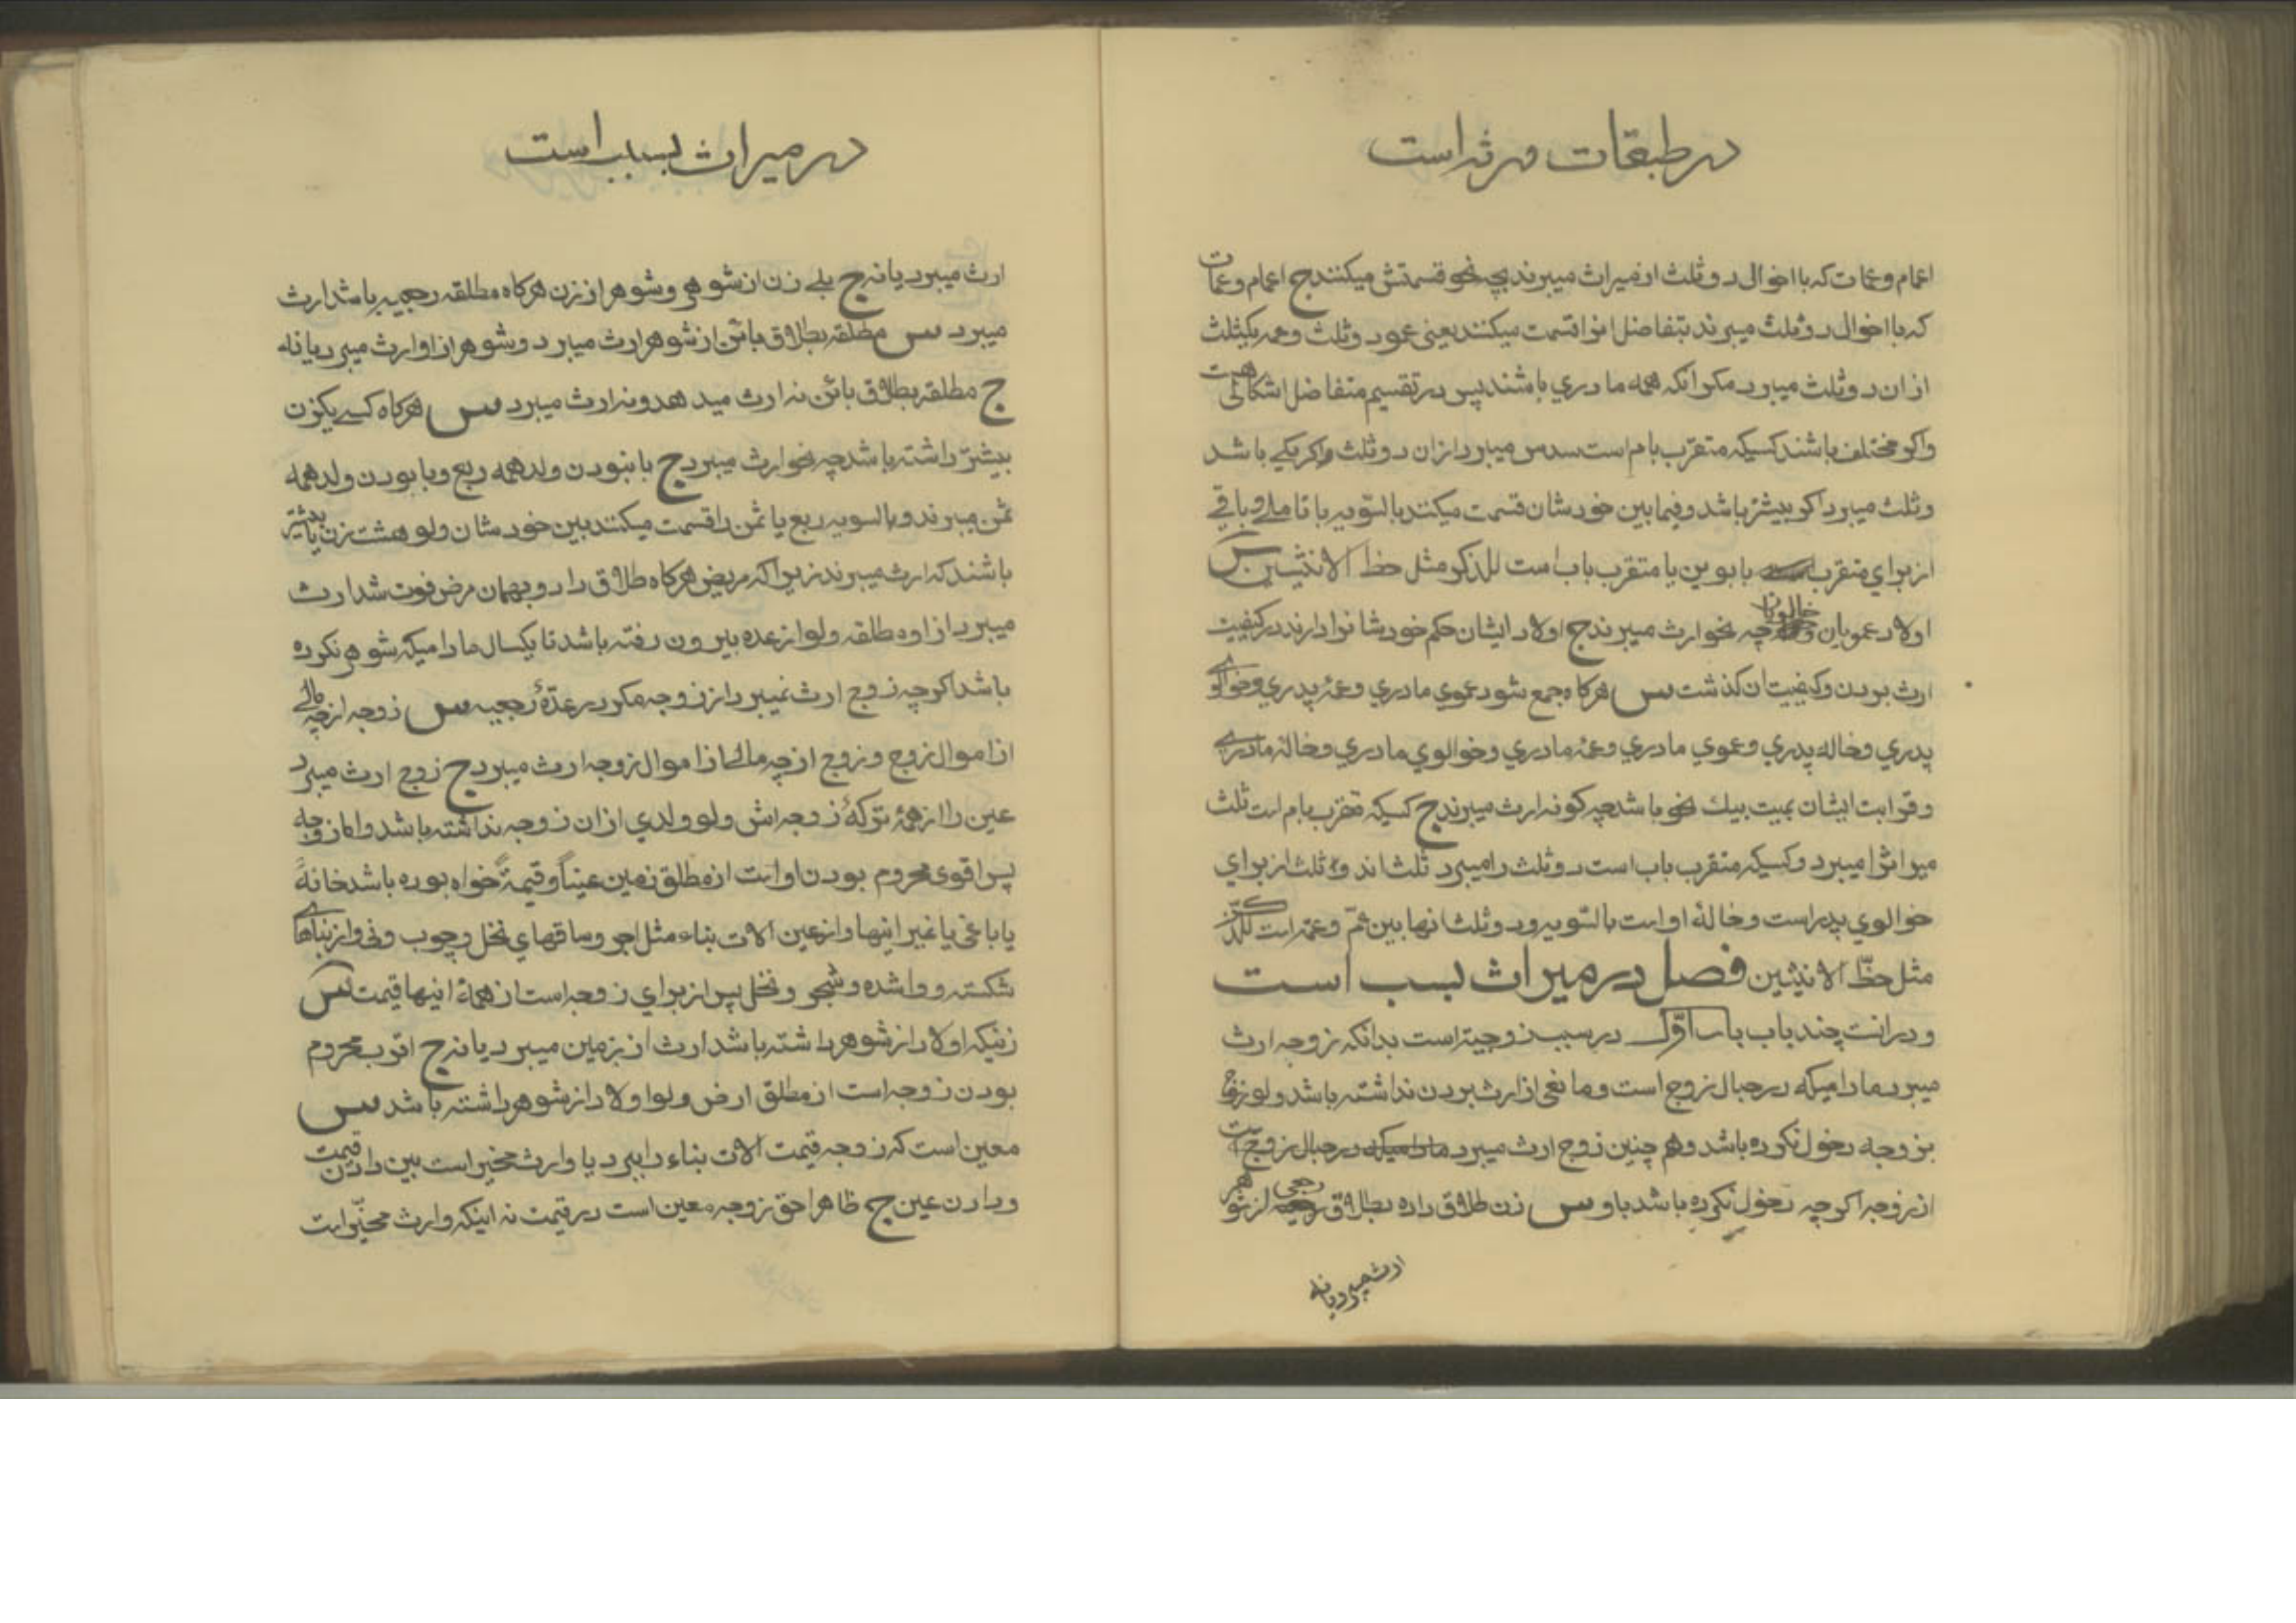 در طبقات ورثه است
اعمام وعمات که با اخوال دو ثلث از میراث میبرند بچه نحو قسمتش میکنند ج اعمام وعمات
که با اخوال دو ثلث میبرند بتفاضل انرا قسمت میکنند یعنی عمو دو ثلث وعمه یکثلث
از ان دو ثلث میبرد مکر انکه همه مادري باشند پس در تقسیم متفاضل اشکالی هست
واکر مختلف باشند کسیکه متقرب بام است سدس میبرد از ان دو ثلث اکر یکے باشد
وثلث میبرد اکر بیشتر باشد وفیما بین خودشان قسمت میکنند بالسّویه با تاملے وباقے
از براي متقرب بابوین یا متقرب باب است للذکر مثل حظ الانثیین س
اولاد عمویان وخالویان چه نحو ارث میبرند ج اولاد ایشان حکم خودشانرا دارند در کیفیت
ارث بردن وکیفیت ان کذشت س هرکاه جمع شود عموي مادري وعمهٔ پدري وخوالوے
پدري وخاله پدري وعموي مادري وعمهٔ مادري وخوالوي مادري وخالهٔ مادرے
وقرابت ایشان بمیت بیك نحو باشد چه کونه ارث میبرند ج کسیکه متقرب بام است ثلث
میراثرا میبرد وکسیکه متقرب باب است دو ثلث را میبرد ثلث از براي
خوالوي پدر است وخالهٔ او است بالسّویه ودو ثلث انها بین عمّ وعمه است للذّکر
مثل حظّ الانثیین فصل در میراث بسبب است
ودر انست چند باب باب اوّل در سبب زوجیّت است بدانکه زوجه ارث
میبرد مادامیکه در حبال زوج است ومانعی از ارث بردن نداشته باشد ولو زوج
بزوجه دخول نکرده باشد وهم چنین زوج ارث میبرد مادامیکه در حبال زوجیت
از زوجه اکرچه دخول نکرده باشد باو س زن طلاق داده بطلاق رجعی از شوهر
ارث میبرد یا نه
در میراث بسبب است
ارث میبرد یا نه ج بلے زن از شوهر وشوهر از زن هرکاه مطلقه رجعیه باشد ارث
میبرد س مطلقه بطلاق بائن از شوهر ارث میبرد وشوهر از او ارث میبرد یا نه
ج مطلقه بطلاق بائن نه ارث میدهد ونه ارث میبرد س هرکاه کسے یکزن
بیشتر داشته باشد چه نحو ارث میبرد ج با نبودن ولد همه ربع وبا بودن ولد همه
ثمن میبرند وبالسویه ربع یا ثمن را قسمت میکنند بین خودشان ولو هشت زن یا بیشتر
باشند که ارث میبرند زیرا که مریض هرکاه طلاق داد وبهمان مرض فوت شد ارث
میبرد از او مطلقه ولو از عده بیرون رفته باشد تا یکسال مادامیکه شوهر نکرده
باشد اکرچه زوج ارث نمیبرد از زوجه مکر در عدّهٔ رجعیه س زوجه از چه مالے
از اموال زوج وزوج از چه مالے از اموال زوجه ارث میبرد ج زوج ارث میبرد
عین را از همهٔ ترکهٔ زوجه اش ولو ولدي از ان زوجه نداشته باشد واما زوجه
پس اقوی محروم بودن او است از مطلق زمین عیناً وقیمةً خواه بوده باشد خانهٔ
یا باغی یا غیر اینها واز عین الات بناء مثل اجر وساقهاي نخل وچوب ونی واز بناهاے
شکسته و واشده وشجر ونخل پس از براي زوجه است از همهٔ اینها قیمت س
زنیکه اولاد از شوهر داشته باشد ارث از زمین میبرد یا نه ج اقرب محروم
بودن زوجه است از مطلق ارض ولو اولاد از شوهر داشته باشد س
معین است که زوجه قیمت الات بناء را ببرد یا وارث مخیر است بین دادن قیمت
ودادن عین ج ظاهرا حق زوجه معین است در قیمت نه اینکه وارث مخیّر است